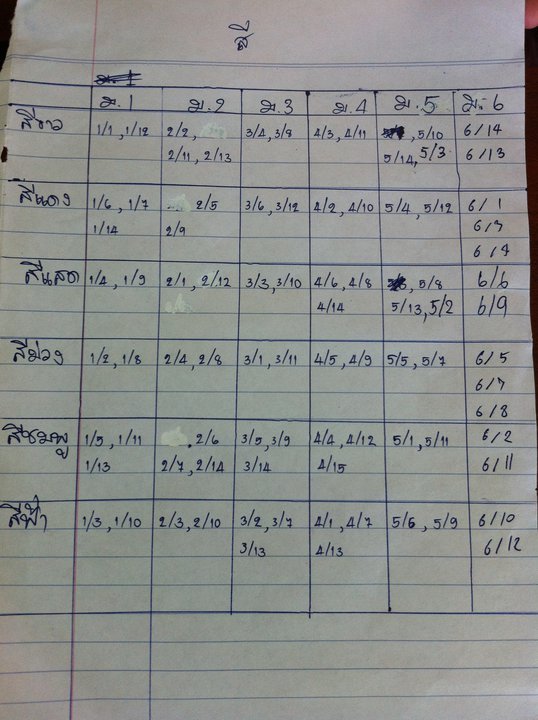 สี
ม.1 ม.2 ม.3 ม.4 ม.5 ม.6
1/1, 1/12 2/2, 3/4, 3/8 4/3, 4/11 , 5/10 6/14
2/11, 2/13 5/14, 5/3 6/13
สีแดง 1/6, 1/7 2/5 3/6, 3/12 4/2, 4/10 5/4, 5/12 6/1
1/14 2/9 6/3
6/4
สีแสด 1/4, 1/9 2/1, 2/12 3/3, 3/10 4/6, 4/8 , 5/8 6/6
4/14 5/13, 5/2 6/9
สีม่วง 1/2, 1/8 2/4, 2/8 3/1, 3/11 4/5, 4/9 5/5, 5/7 6/5
6/7
6/8
สีชมพู 1/5, 1/11 , 2/6 3/5, 3/9 4/4, 4/12 5/1, 5/11 6/2
1/13 2/7, 2/14 3/14 4/15 6/11
สีฟ้า 1/3, 1/10 2/3, 2/10 3/2, 3/7 4/1, 4/7 5/6, 5/9 6/10
3/13 4/13 6/12